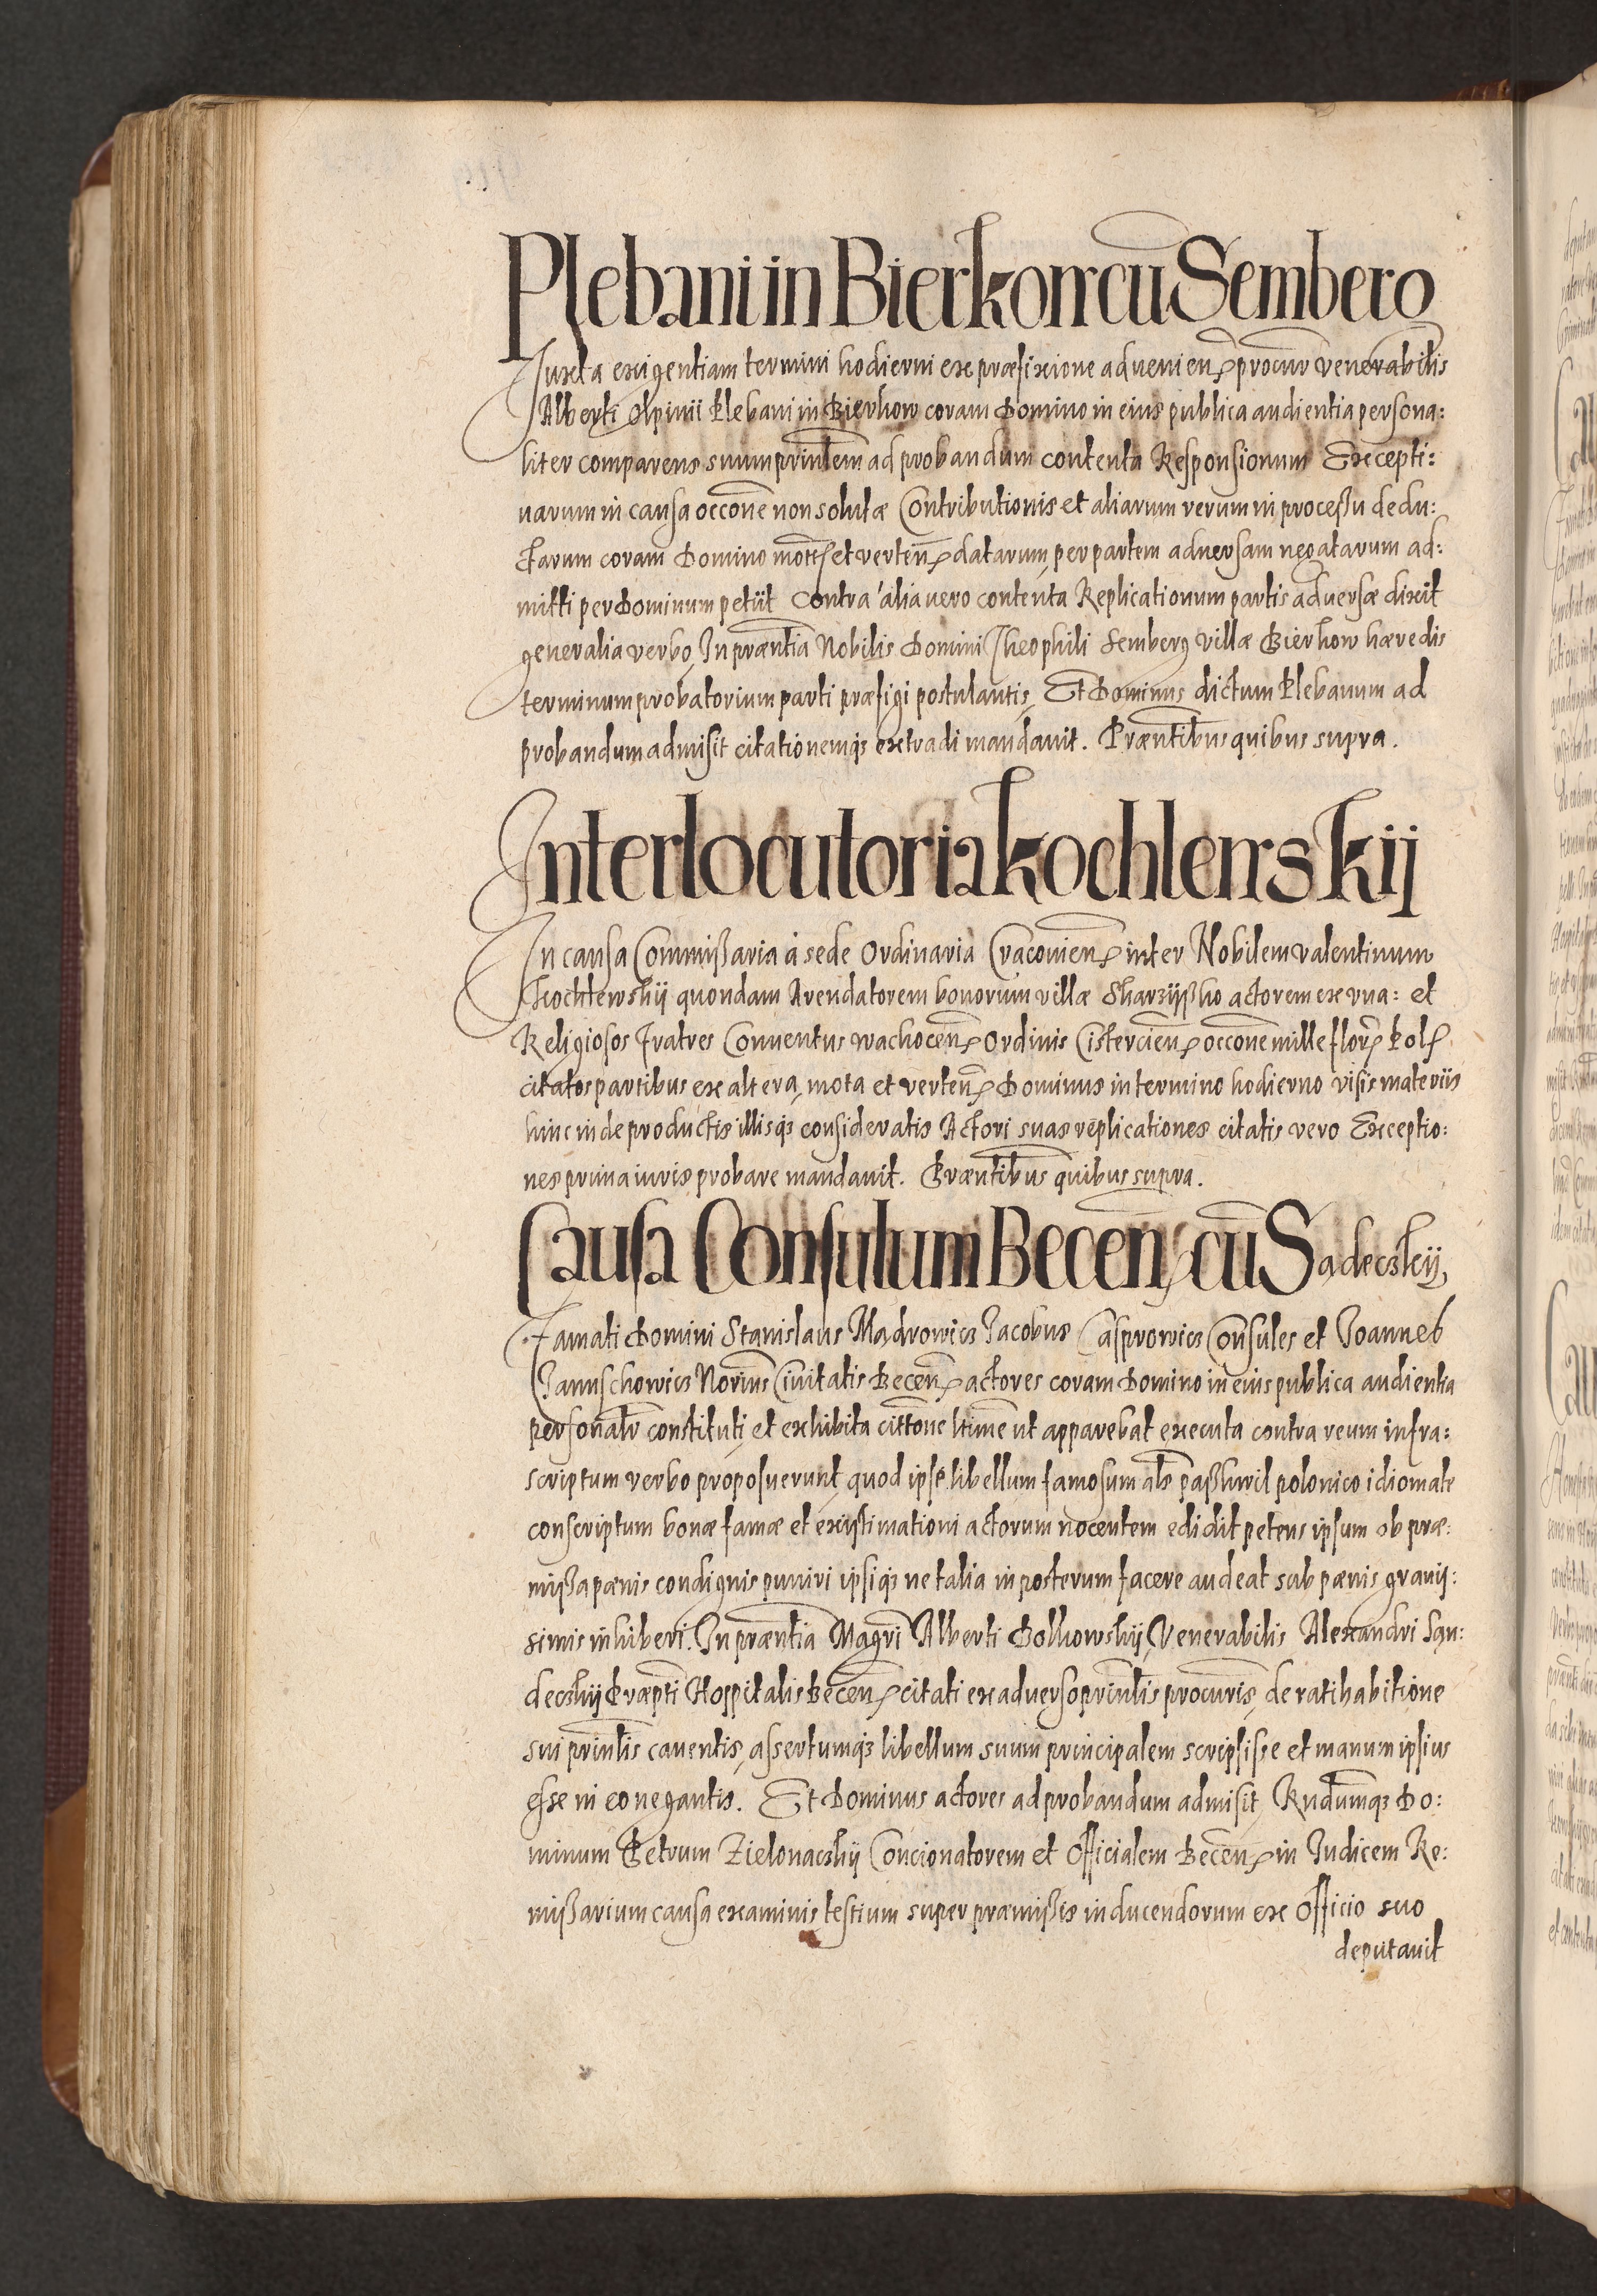 Plebani in Bierkow cū Semberg
Iuxta exigentiam termini hodierni ex præfixione advenien̄ procur̄ Venerabilis
Alberti Olpinii Plebani in Bierkow coram Domino in eius publica audientia persona:
liter comparens suum prīnlem ad probandum contenta Responsionum Excepti:
uarum in causa occōne non solutæ Contributionis et aliarum rerum in processu dedu:
ctarum coram Domino motæ et verten̄ datarum, per partem aduersam negatarum ad:
mitti per Dominum petiit Contra alia uero contenta Replicationum partis aduersæ dixit
generalia verbo, In præn̄tia Nobilis Domini Theophili Semberg villæ Bierkow hæredis
terminum probatorium parti præfigi postulantis, Et Dominus dictum Plebanum ad
probandum admisit citationemq; extradi mandauit. Præn̄tibus quibus supra.
Interlocutoria Kochlewskij
In causa Commissaria à sede Ordinaria Cracouien̄ inter Nobilem Valentinum
Kochlewskij quondam Arendatorem bonorum villæ Skarzyssko actorem ex vna: et
Religiosos Fratres Conuentus Wachocen̄ Ordinis Cistercien̄ occōne mille flor̄ Pol
citatos partibus ex altera, mota et verten̄ Dominus in termino hodierno visis materiis
hinc inde productis illisq; consideratis Actori suas replicationes citatis vero Exceptio:
nes prima iuris probare mandauit. Præn̄tibus quibus supra.
Causa Consulum Becen̄ cū Sadeczkij,
Famati Domini Stanislaus Mądrowicz Jacobus Casprowicz Consules et Joannes
Januschowicz Norius Ciuitatis Becen̄ actores coram Domino in eius publica audientia
personalr̄ constituti, et exhibita cittōne ltime ut apparebat executa contra reum infra:
scriptum verbo proposuerunt, quod ipse libellum famosum als paszkwil polonico idiomate
conscriptum bonæ famæ et existimationi actorum nocentem edidit petens ipsum ob præ:
missa pænis condignis puniri ipsiq; ne talia in posterum facere audeat sub pænis gravis:
simis inhiberi. In præn̄tia Magrī Alberti Bolkowskij, Venerabilis Alexandri San:
deczkij Præpti Hospitalis Becen̄ citati ex aduerso prīnlis procuris, de ratihabitione
sui prīnlis cauentis, assertumq; libellum suum principalem scripsisse et manum ipsius
esse in eo negantis. Et Dominus actores ad probandum admisit, Rndumq; Do:
minum Petrum Zielonaczkij Concionatorem et Officialem Becen̄ in Judicem Re:
missarium causa examinis testium super præmissis inducendorum ex Officio suo
deputauit